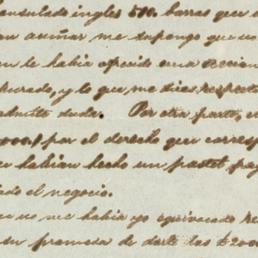 onsulado ingles 500 barras que
acuñar me supongo que no
le habia ofrecido una
urado, y lo que me dices respecto
admite duda. Por otra parte,
000. por el derecho que corresp
habian hecho un pastel
ado el negocio.
no me habia yo equivocado
su promesa de darte las $2000